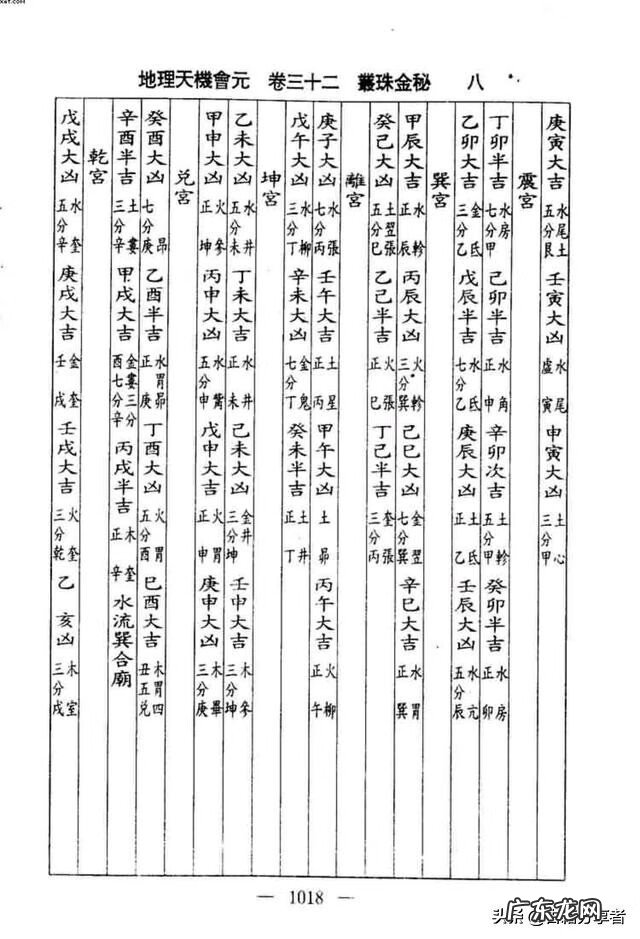 地理天機會元　卷三十二　叢珠金秘　八
庚寅大吉 水尾土五分艮 壬寅大凶 水尾虛寅 申寅大凶 土心三分甲
震宮
丁卯半吉 水房七分甲 己卯半吉 水角正申 辛卯次吉 土軫五分甲 癸卯半吉 水房正卯
乙卯大吉 金氐三分乙 戊辰半吉 水氐七分乙 庚辰大凶 土氐正乙 壬辰大凶 水亢五分辰
巽宮
甲辰大吉 水軫正辰 丙辰大凶 火軫三分巽 己巳大凶 金翌七分巽 辛巳大吉 水胃正巽
癸己大凶 土翌張五分巳 乙己半吉 火張正巳 丁己半吉 奎張三分丙
離宮
庚子大凶 水張七分丙 壬午大吉 土星正丙 甲午大凶 土昴 丙午大吉 火柳正午
戊午大凶 水柳三分丁 辛未大吉 金鬼七分丁 癸未半吉 土井正丁
坤宮
乙未大凶 水井五分未 丁未大吉 水井正未 己未大凶 金井三分坤 壬申大吉 木參三分坤
甲申大凶 火參正坤 丙申大凶 水觜五分申 戊申大吉 火胃正申 庚申大凶 木畢三分庚
兌宮
癸酉大凶 昴七分庚 乙酉半吉 水胃昴正庚 丁酉大凶 火胃五分酉 巳酉大吉 木胃四丑五兌
辛酉半吉 土婁三分辛 甲戌大吉 金婁三分酉七分辛 丙戌半吉 木奎正辛 水流巽合廟
乾宮
戊戌大凶 水奎五分辛 庚戌大吉 金奎壬戌 壬戌大吉 火奎三分乾 乙亥凶 木室三分戌
— 1018 —
广东龙网